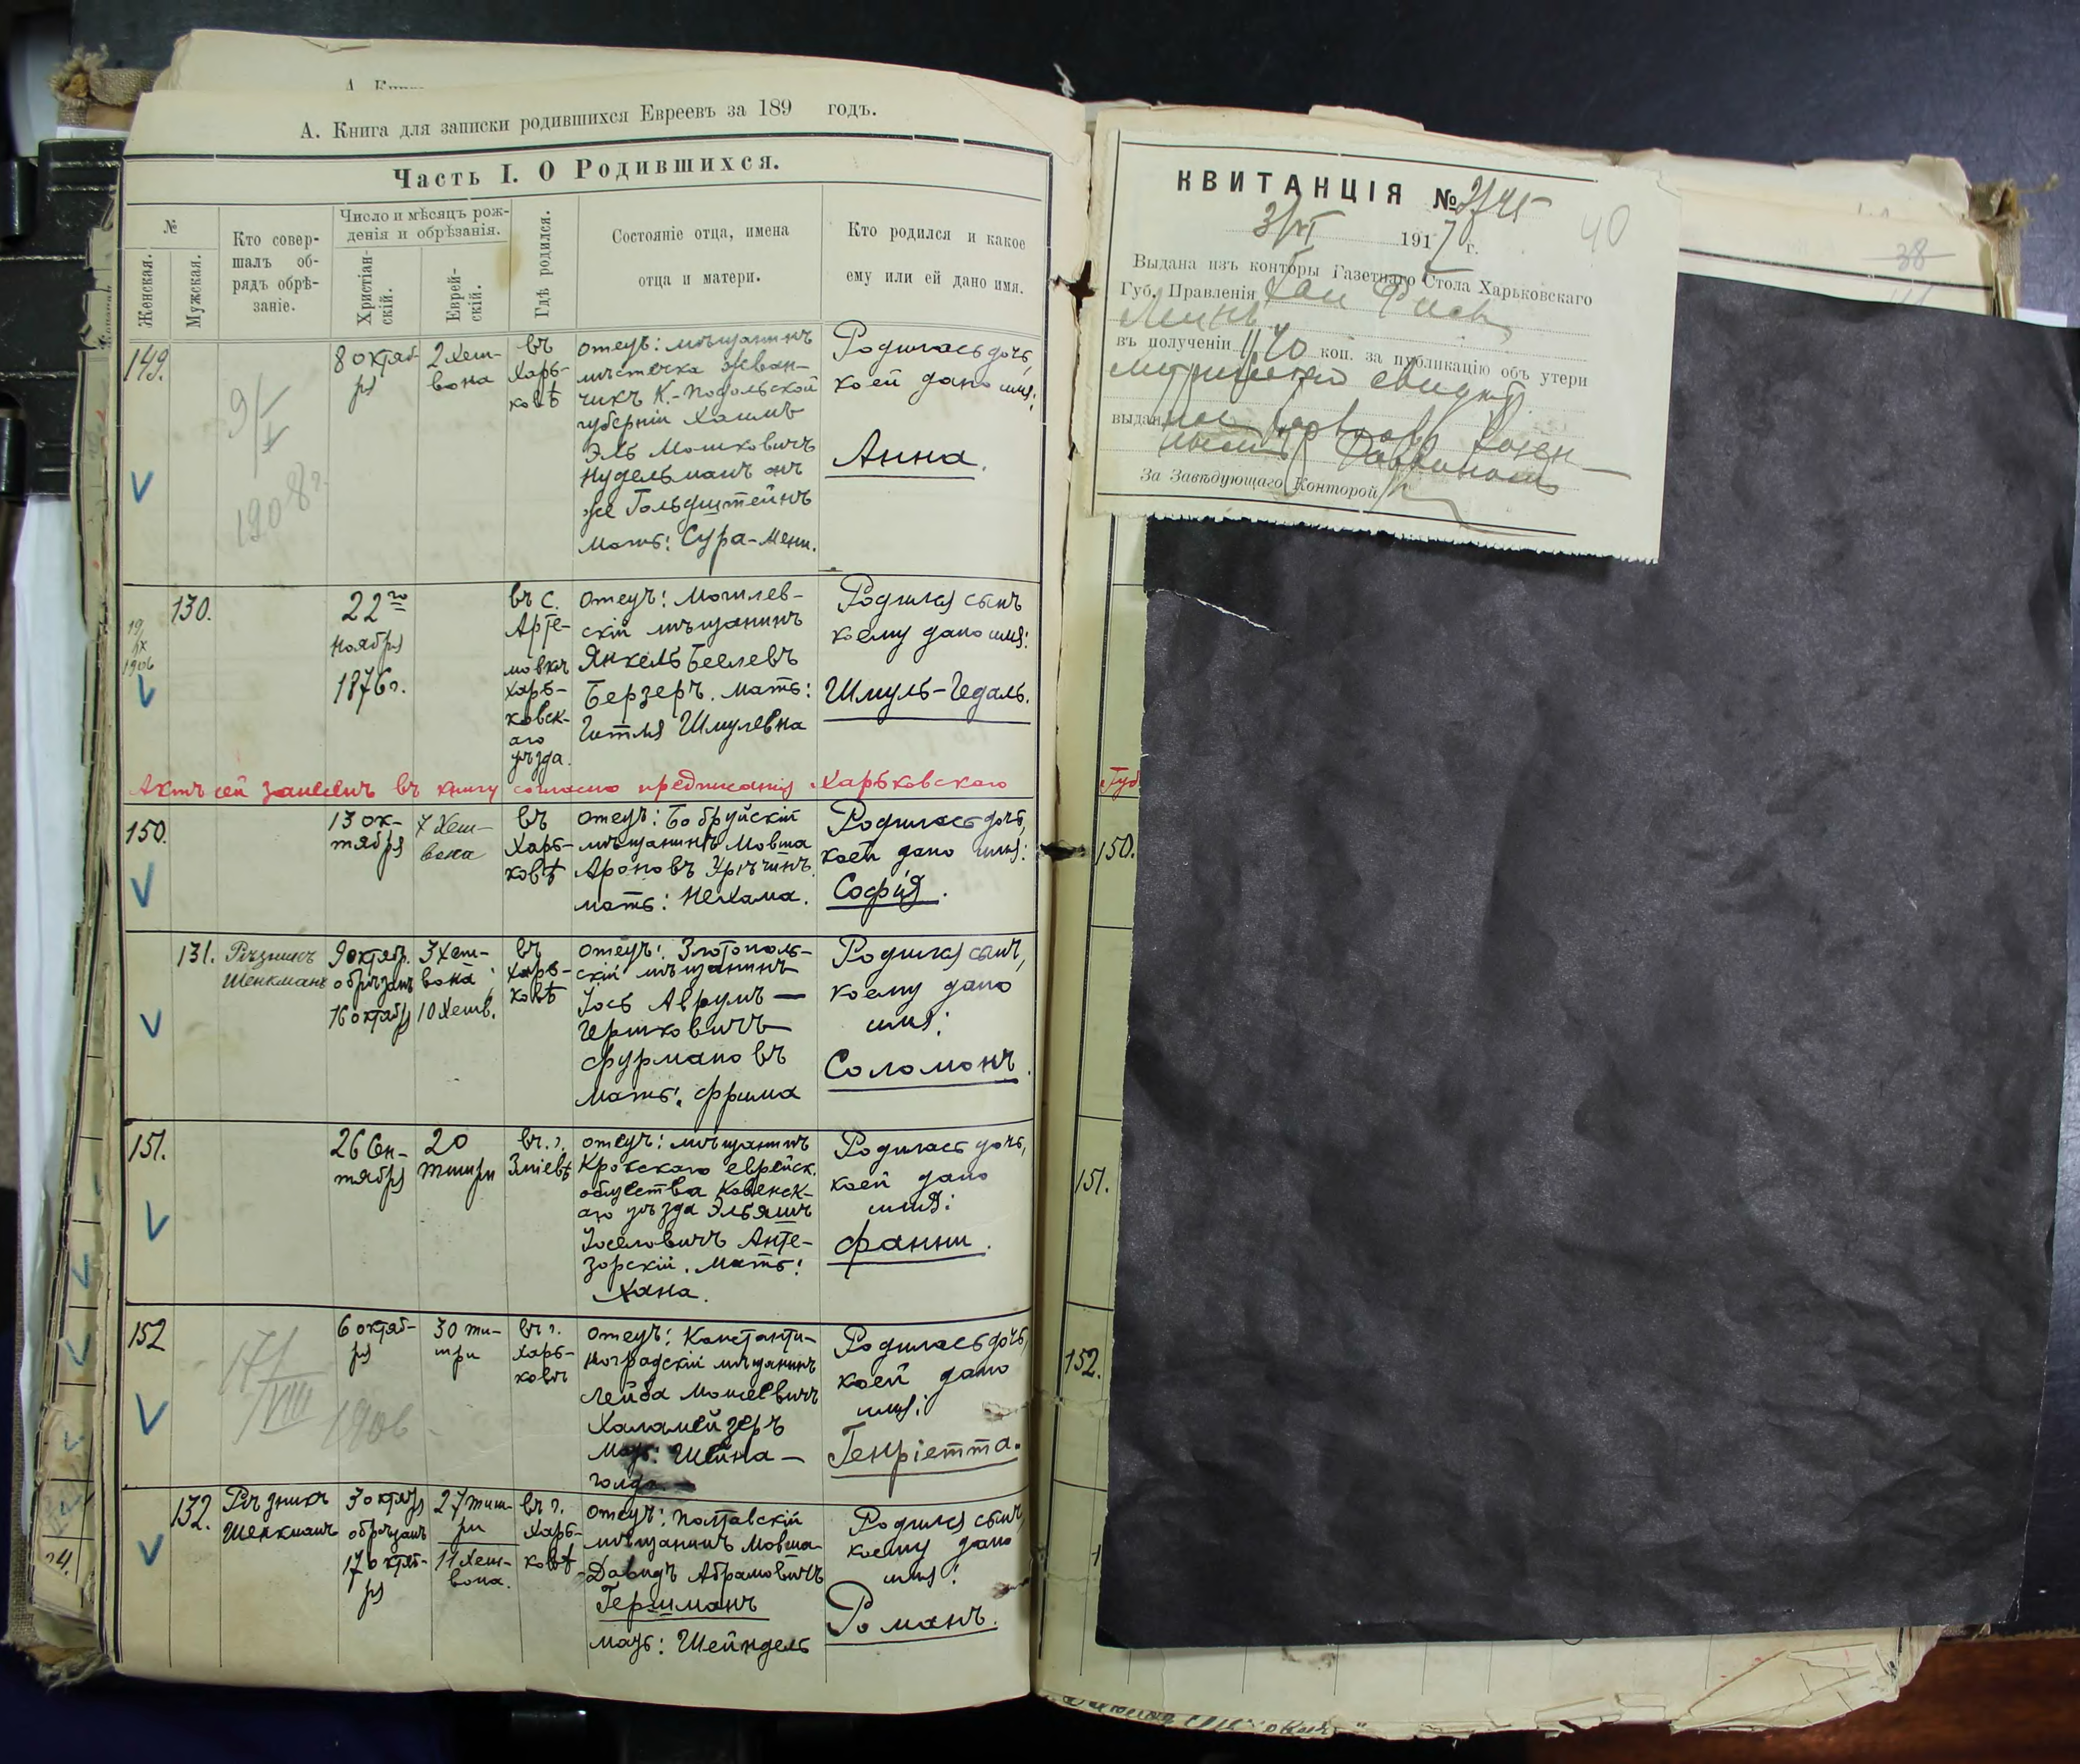 А. Книга для записки родившихся Евреевъ за 189 годъ.
Часть I. О Родившихся.
№
Женская.
Мужская.
Кто совер-
шалъ об-
рядъ обрѣ-
заніе.
Число и мѣсяцъ рож-
денія и обрѣзанія.
Христіан-
скій.
Еврей-
скій.
Гдѣ родился.
Состояніе отца, имена
отца и матери.
Кто родился и какое
ему или ей дано имя.
149.
1908 г.
8 октяб-
ря
2 Хеш-
вона
въ
Харь-
ковѣ
отецъ: мѣщанинъ
мѣстечка Жван-
чикъ К.-Подольской
губерніи Хаимъ
Эль Мошковичъ
Нудельманъ онъ
же Гольдштейнъ
мать: Сура-Мени.
Родилась дочь,
коей дано имя:
Анна.
130.
19/IX
1906
22го
ноября
1876 г.
въ с.
Арте-
мовкѣ
Харь-
ковск-
аго
уѣзда.
отецъ: Могилев-
скій мѣщанинъ
Янкель Беелевъ
Берзеръ. мать:
Гитля Шмулевна
Родился сынъ
коему дано имя:
Шмуль-Гедаль.
Актъ сей занесенъ въ книгу согласно предписанія Харьковскаго
150.
13 ок-
тября
7 Хеш-
вона
въ
Харь-
ковѣ
отецъ: Бобруйскій
мѣщанинъ Мовша
Ароновъ Урѣчинъ.
мать: Нехама.
Родилась дочь,
коей дано имя:
Софія.
131.
Рѣзникъ
Шенкманъ
9 октяб.
обрѣзанъ
16 октября
3 Хеш-
вона
10 Хешв.
въ
Харь-
ковѣ
отецъ: Златополь-
скій мѣщанинъ
Іось Аврумъ —
Гершковичъ
Фурмановъ
мать: Фрима
Родился сынъ,
коему дано
имя:
Соломонъ.
151.
26 Сен-
тября
20
Тишри
въ г.
Зміевѣ
отецъ: мѣщанинъ
Крокскаго еврейск.
общества Ковенск-
аго уѣзда Эльяшъ
Іоселовичъ Анте-
зорскій. мать:
Хана.
Родилась дочь,
коей дано
имя:
Фанни.
152
17/VIII
1906
6 октяб-
ря
30 ти-
шри
въ г.
Харь-
ковѣ
отецъ: Константи-
ноградскій мѣщанинъ
Лейба Моисеевичъ
Халамейзеръ
мать: Шейна —
Голда
Родилась дочь,
коей дано
имя:
Генріетта.
132.
Рѣзникъ
Шенкманъ
3 октяб.
обрѣзанъ
17 октяб-
ря
27 тиш-
ри
11 Хеш-
вона.
въ г.
Харь-
ковѣ
отецъ: Полтавскій
мѣщанинъ Мовша-
Давидъ Абрамовичъ
Гершманъ
мать: Шейндель
Родился сынъ,
коему дано
имя:
Романъ.
24.
КВИТАНЦІЯ №
3/VI 1917 г.
40
Выдана изъ конторы Газетнаго Стола Харьковскаго
Губ. Правленія
въ полученіи коп. за публикацію объ утери
выдан
За Завѣдующаго Конторой
38
Губ.
150.
151.
152.
1